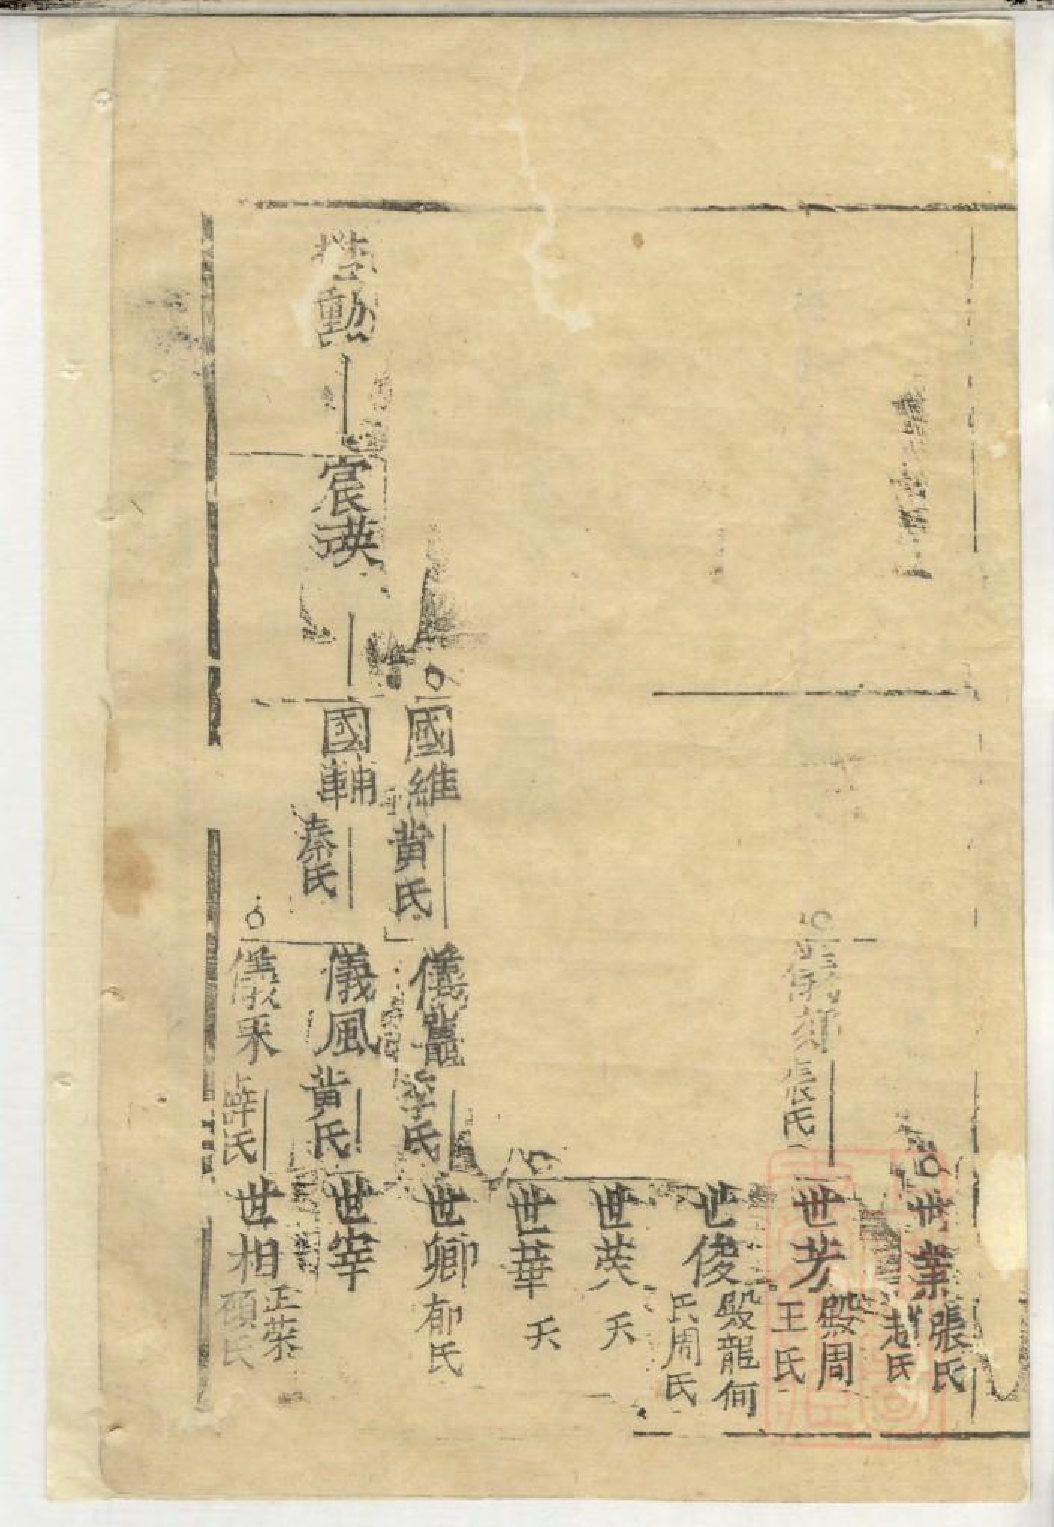 世業
張氏
趙氏
張氏
世芳
殿周
王氏
世俊
殿龍何
氏周氏
世英
夭
世華
夭
國維
黃氏
李氏
世卿
郁氏
宸英
國輔
秦氏
儀風
黃氏
世宰
儀采
薛氏
世相
正榮
顧氏